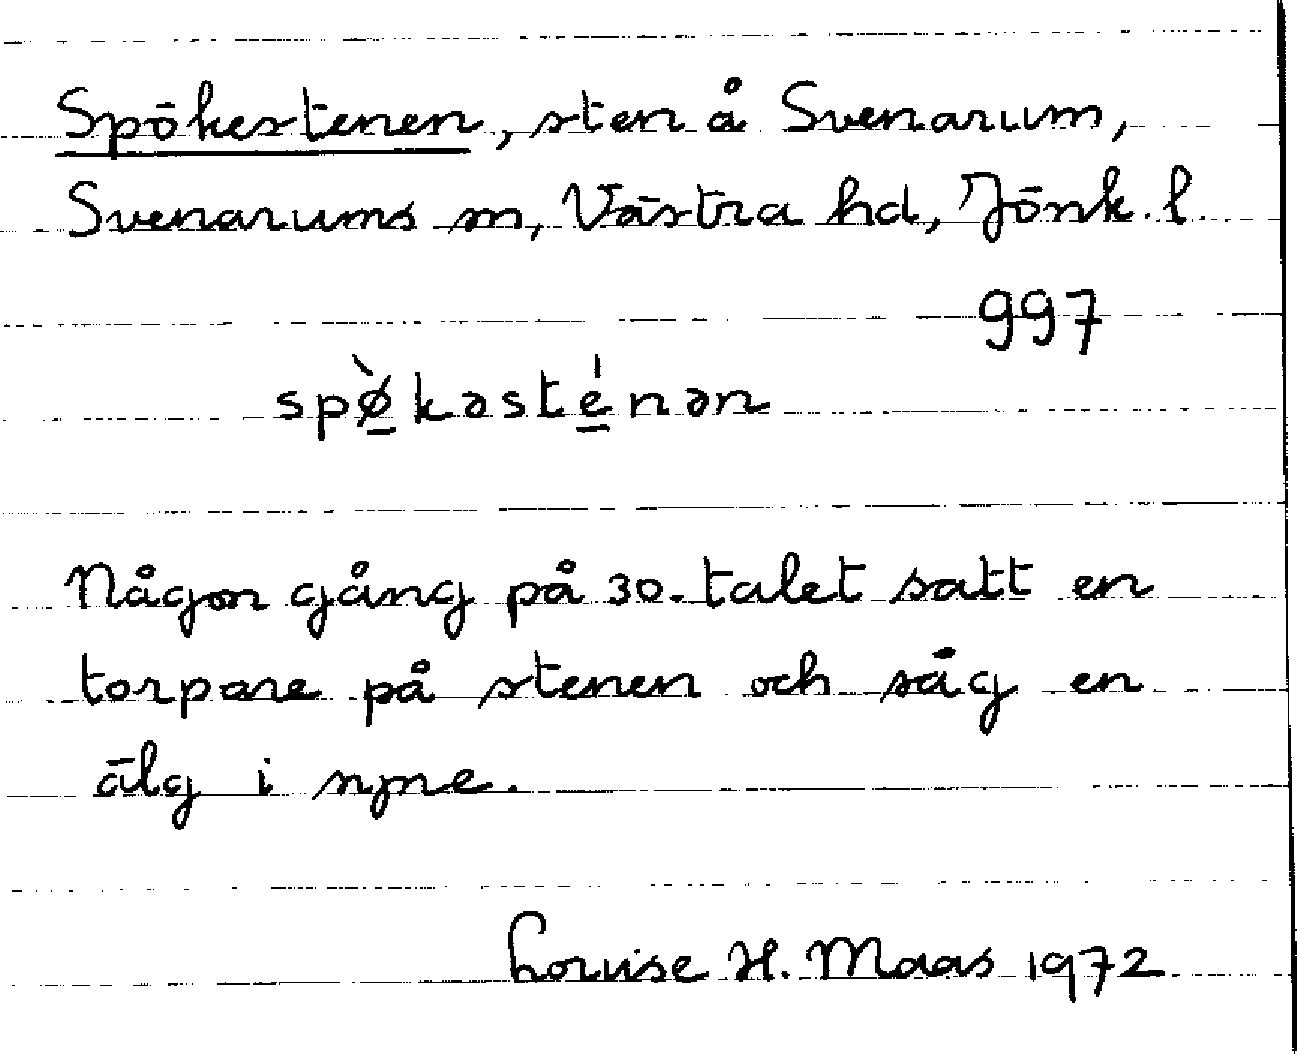 Spökestenen, sten å Svenarum,
Svenarums sn, Västra hd, Jönk. l
997
spø̀kəsténən
Någon gång på 30-talet satt en
torpare på stenen och såg en
älg i syne.
Louise H. Maas 1972